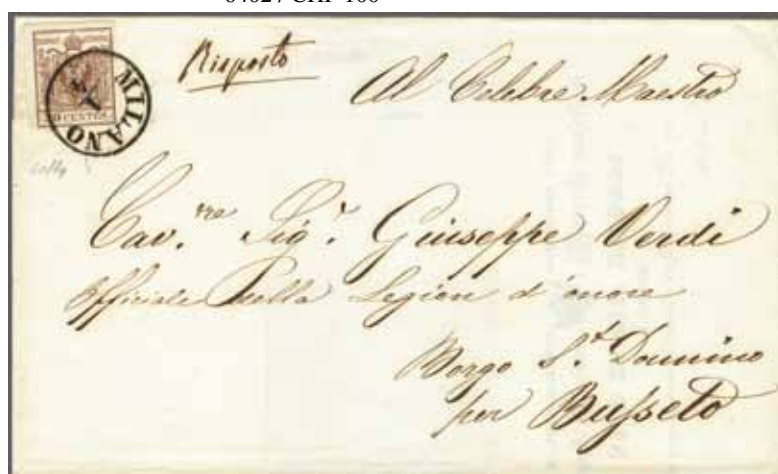 6462 / CHF 100
MILANO
CENTES
Risposto
Al Celebre Maestro
Cav.re Sig.r Giuseppe Verdi
Officiale della Legion d'onore
Borgo S.t Donnino
per Busseto